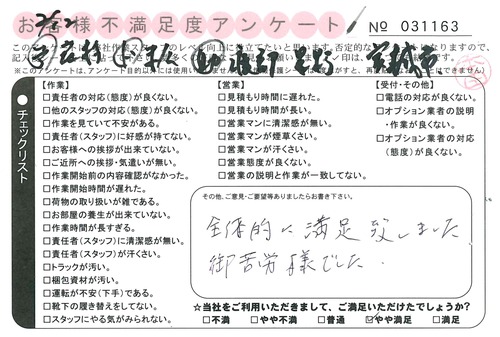 お客様不満足度アンケート
№ 031163
チェックリスト
【作業】
□責任者の対応(態度)が良くない。
□他のスタッフの対応(態度)が良くない。
□作業を見ていて不安がある。
□責任者(スタッフ)に好感が持てない。
□お客様への挨拶が出来ていない。
□ご近所への挨拶・気遣いが無い。
□作業開始前の内容確認がなかった。
□作業開始時間が遅れた。
□荷物の取り扱いが雑である。
□お部屋の養生が出来ていない。
□作業時間が長すぎる。
□責任者(スタッフ)に清潔感が無い。
□責任者(スタッフ)が汗くさい。
□トラックが汚い。
□梱包資材が汚い。
□運転が不安(下手)である。
□靴下の履き替えをしてない。
□スタッフにやる気がみられない。
【営業】
□見積もり時間に遅れた。
□見積もり時間が長い。
□営業マンに清潔感が無い。
□営業マンが煙草くさい。
□営業マンが汗くさい。
□営業態度が良くない。
□営業の説明と作業が一致してない。
【受付・その他】
□電話の対応が良くない。
□オプション業者の説明
・作業が良くない。
□オプション業者の対応
(態度)が良くない。
その他、ご意見・ご要望等ありましたらお書き下さい。
全体的に満足致しました
御苦労様でした.
☆当社をご利用いただきまして、ご満足いただけたでしょうか?
□不満 □やや不満 □普通 ☑やや満足 □満足